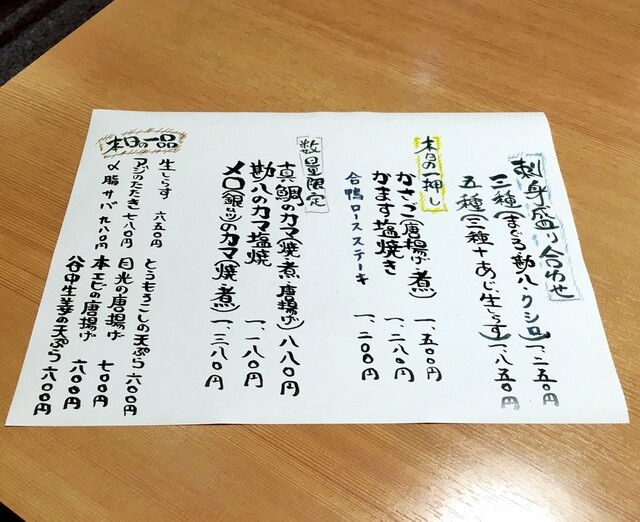 刺身盛り合わせ
三種(まぐろ・勘八・クシロ) 一、二五〇円
五種(三種+あじ・生しらす) 一、八五〇円
本日の一押し
かさご(唐揚げ・煮) 一、五〇〇円
かます塩焼き 一、二八〇円
合鴨ロースステーキ 一、二〇〇円
数量限定
真鯛のカマ(焼・煮・唐揚げ) 八八〇円
勘八のカマ塩焼 一、一八〇円
メロ(銀ムツ)のカマ(焼・煮) 一、三八〇円
本日の一品
生しらす 六五〇円
アジのたたき 七八〇円
〆脂サバ 九八〇円
とうもろこしの天ぷら 六〇〇円
目光の唐揚げ 八〇〇円
本エビの唐揚げ 七〇〇円
谷中生姜の天ぷら 六八〇円